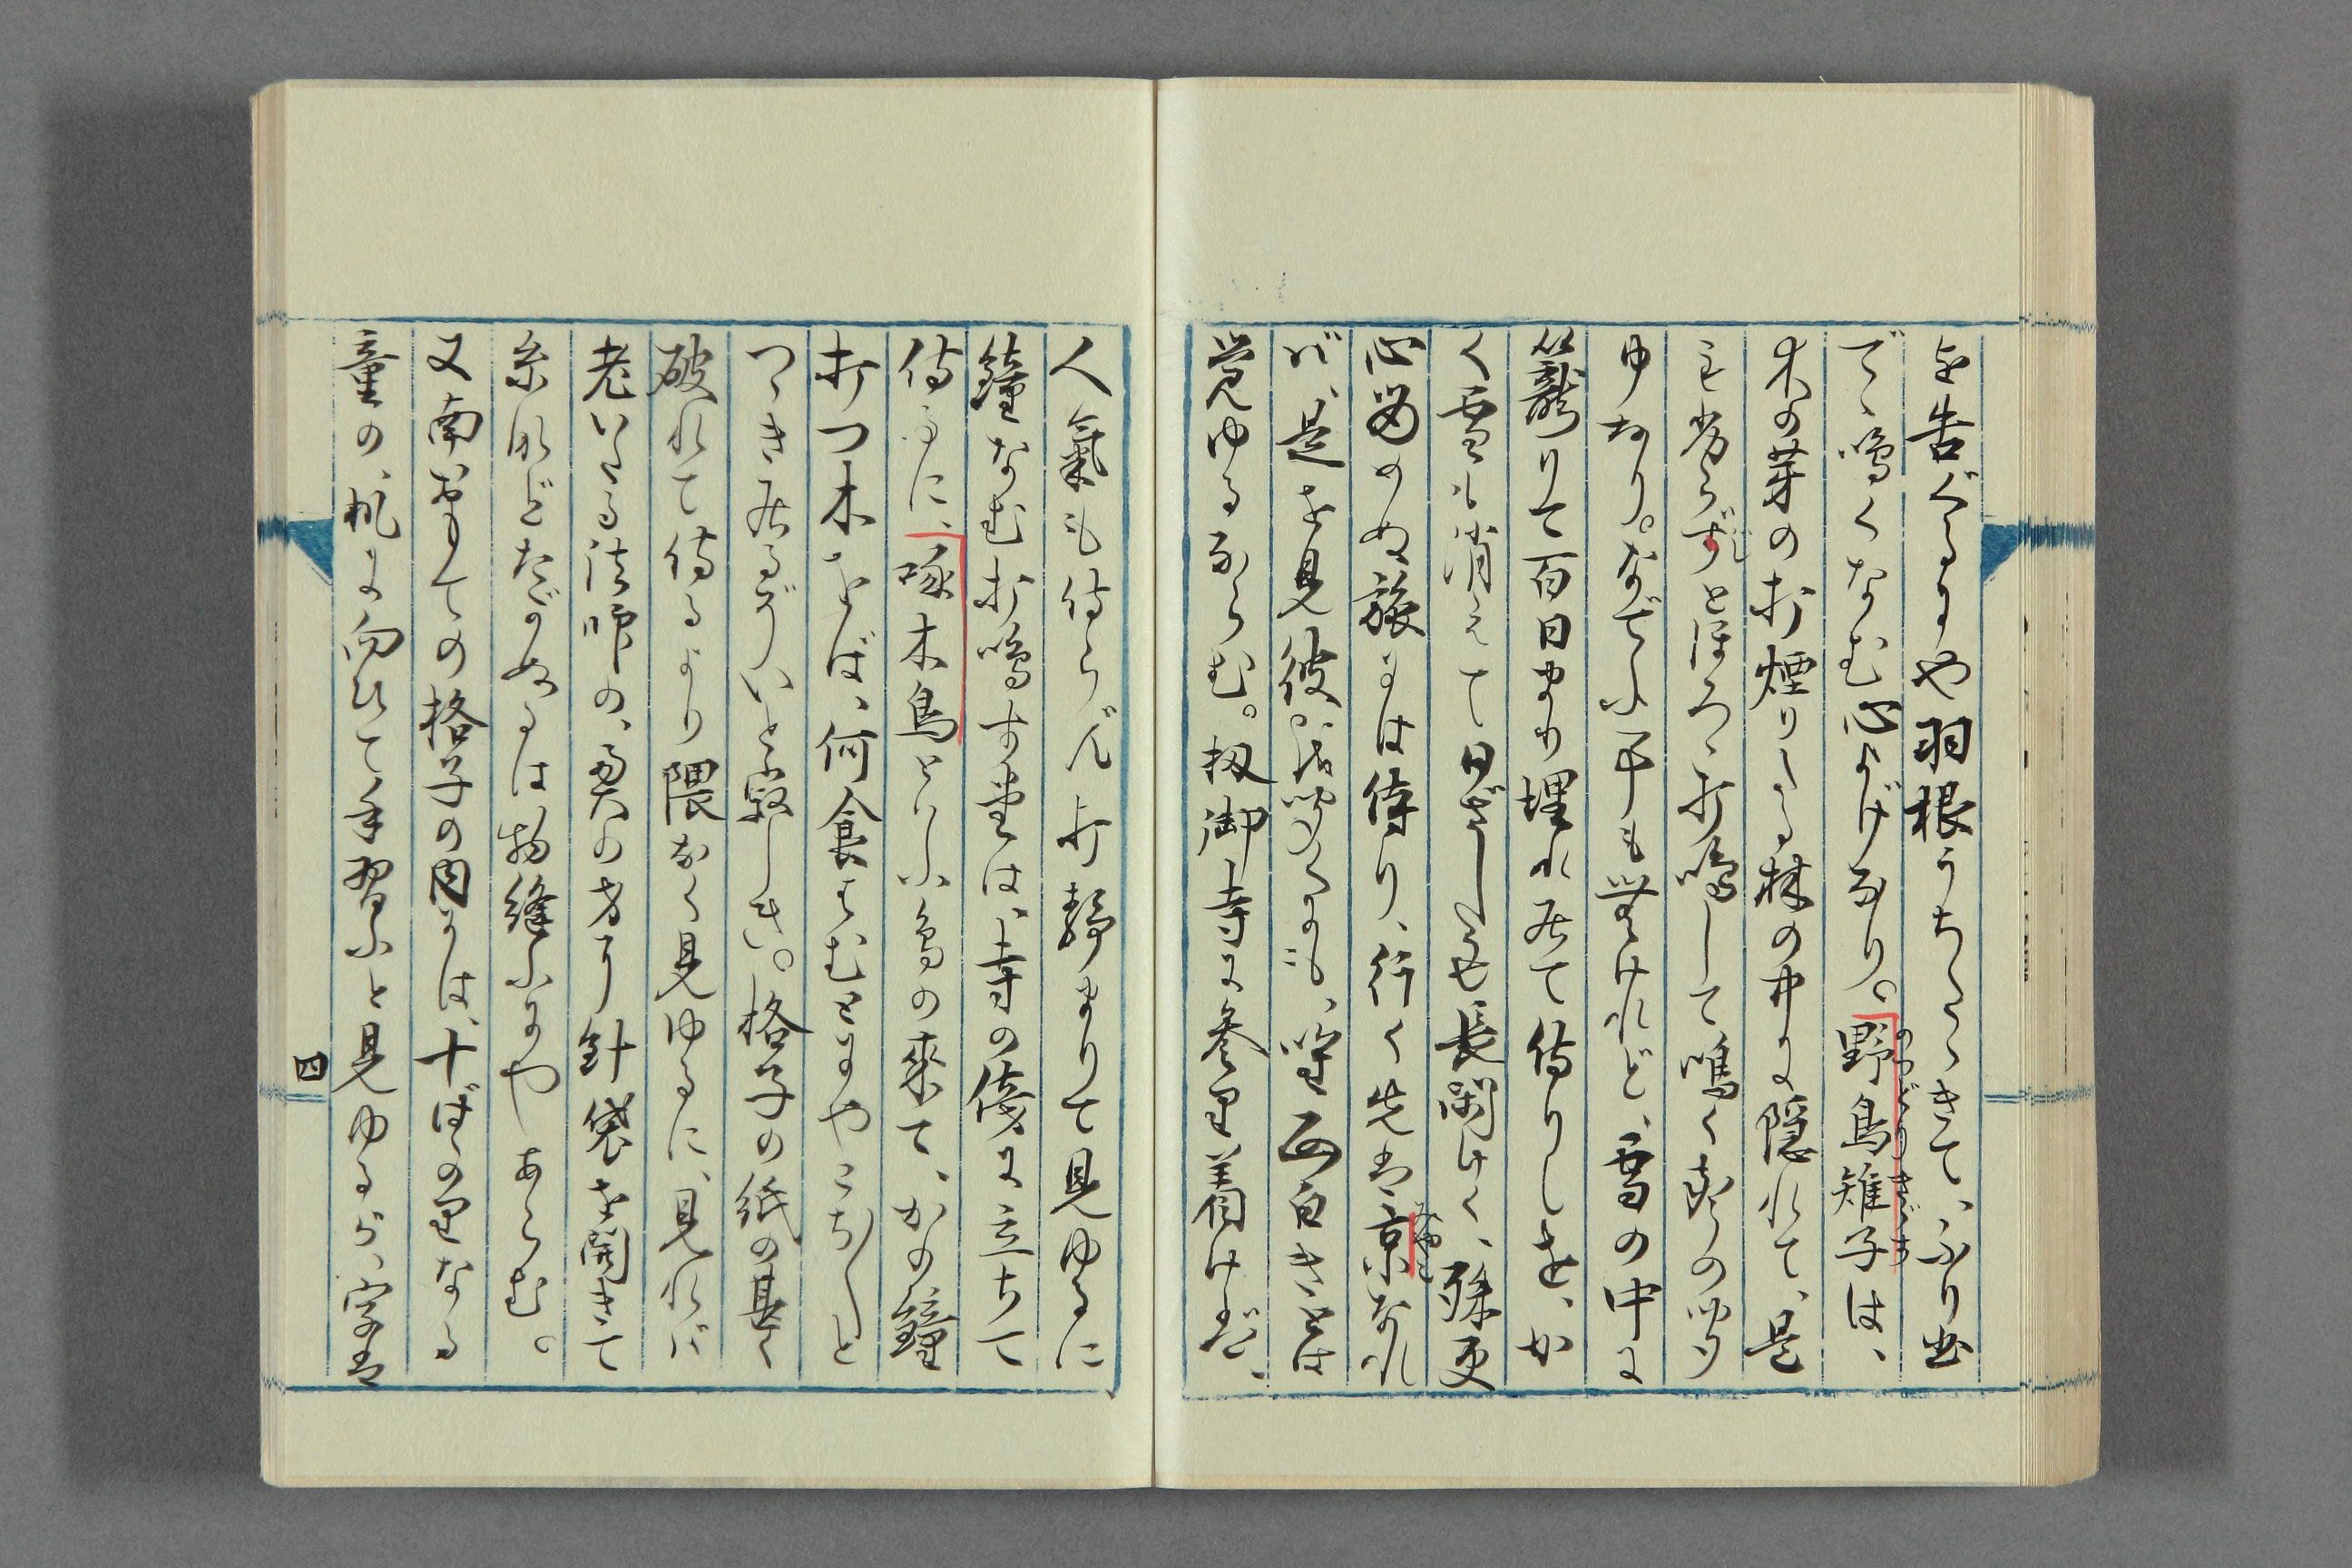 を告ぐるにや羽根うちたゝきて、ふり出
でゝ鳴くなむ心よげなり。野鳥雉子は、
のつどりきゞす
木の芽の打煙りたる林の中に隠れて、是
も劣らずとほろゝ打鳴して鳴く声の聞
ゆなり。なでふ事も無けれど、雪の中に
籠りて百日まり埋れ居て侍りしを、か
く雪も消えて日ざしも長閑けく、殊更
心留めぬ旅には侍り、行く先は京なれ
みやこ
ば、是を見彼を聞くにも、皆面白きとは
覚ゆるならむ。扨御寺に参里着けるに、
人氣も侍らず打静まりて見ゆるに
鐘なむ打鳴す堂は、寺の傍に立ちて
侍るに、啄木鳥といふ鳥の来て、かの鐘
打つ木をば、何食はむとにやこち〳〵と
つゝき居るがいと寂しき。格子の紙の甚く
破れて侍るより隈なく見ゆるに、見れば
老いたる法師の、奥の方に針袋を開きて
糸などたがぬるは物縫ふにやあらむ。
又南おもての格子の内には、十ばかり里なる
童の、机に向ひて手習ふと見ゆるが、字は
四